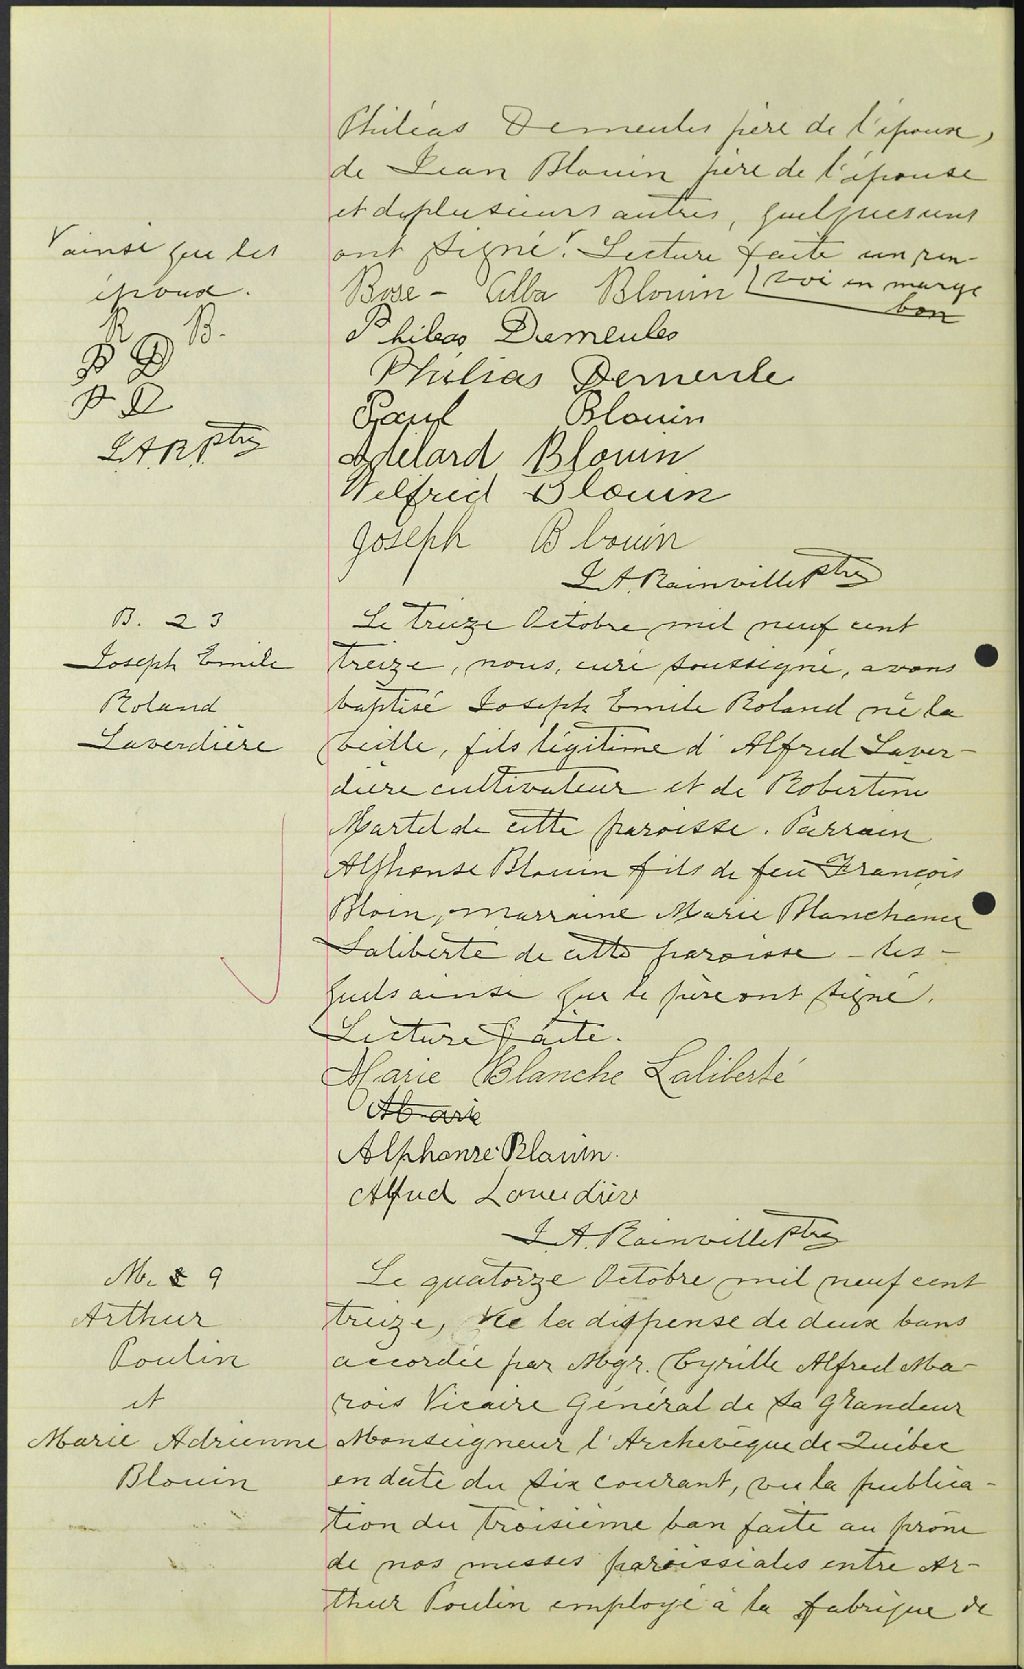 Philéas Demeules père de l'époux,
de Jean Blouin père de l'épouse
et de plusieurs autres, quelques uns
ont signé. Lecture faite un ren-
voi en marge
bon
√ ainsi que les
époux.
R B.
P D
P D
J.A.R. Ptre
Rose - Alba Blouin
Phileas Demeules
Philias Demeule
Paul Blouin
Adélard Blouin
Wilfrid Blouin
Joseph Blouin
J. A. Rainville Ptre
B. 23
Joseph Emile
Roland
Laverdière
Le treize Octobre mil neuf cent
treize, nous, curé soussigné, avons
baptisé Joseph Emile Roland né la
veille, fils légitime d'Alfred Laver-
dière cultivateur et de Robertine
Martel de cette paroisse. Parrain
Alphonse Blouin fils de feu François
Bloin, marraine Marie Blanche
Laliberté de cette paroisse - les-
quels ainsi que le père ont signé.
Lecture faite.
Marie Blanche Laliberté
Marie
Alphonse Blouin.
Alfred Laverdière
J. A. Rainville Ptre
M. 9
Arthur
Poulin
et
Marie Adrienne
Blouin
Le quatorze Octobre mil neuf cent
treize, Vu la dispense de deux bans
accordée par Mgr. Cyrille Alfred Ma-
rois Vicaire Général de Sa Grandeur
Monseigneur l'Archevêque de Québec
en date du six courant, vu la publica-
tion du troisième ban faite au prône
de nos messes paroissiales entre Ar-
thur Poulin employé à la fabrique de